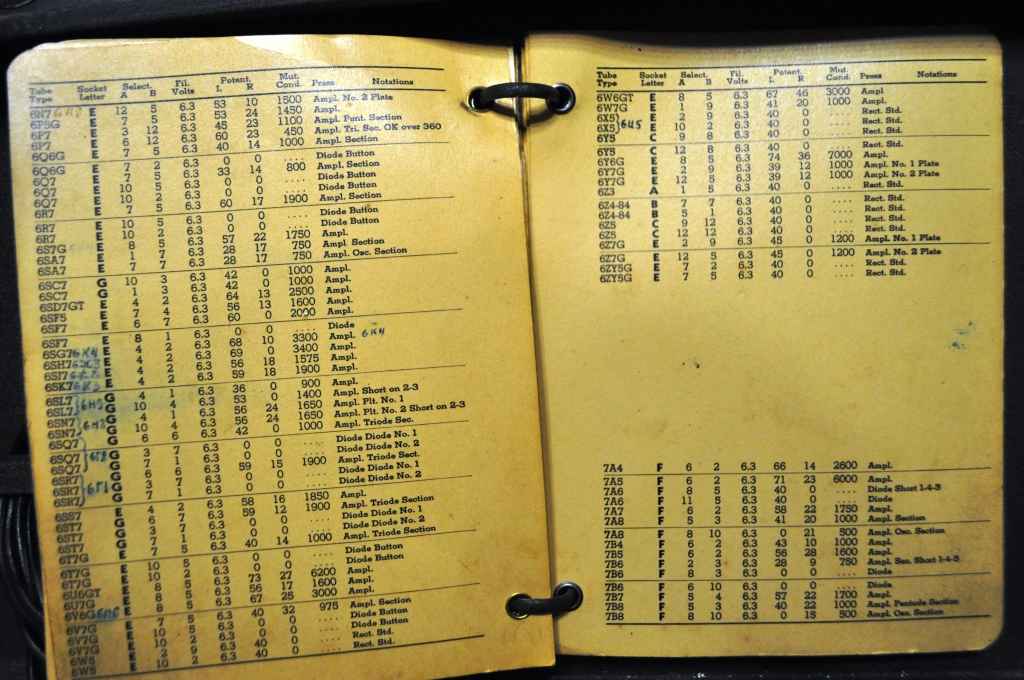 Tube Type Socket Letter Select. A B Fil. Volts Potent. L R Mut. Cond. Press Notations
6N7 E 12 5 6.3 53 10 1500 Ampl. No. 2 Plate
6P5G E 7 5 6.3 53 24 1450 Ampl.
6P7 E 3 12 6.3 45 23 1100 Ampl. Pent. Section
6P7 E 6 12 6.3 60 23 450 Ampl. Tri. Sec. OK over 360
6Q6G E 7 5 6.3 40 14 1000 Ampl. Section
6Q6G E 7 2 6.3 0 0 .... Diode Button
6Q7 E 7 5 6.3 33 14 800 Ampl. Section
6Q7 E 10 5 6.3 0 0 .... Diode Button
6Q7 E 10 2 6.3 0 0 .... Diode Button
6R7 E 7 5 6.3 60 17 1900 Ampl. Section
6R7 E 10 5 6.3 0 0 .... Diode Button
6R7 E 10 2 6.3 0 0 .... Diode Button
6S7G E 8 5 6.3 57 22 1750 Ampl.
6SA7 E 1 7 6.3 28 17 750 Ampl Section
6SA7 E 7 7 6.3 28 17 750 Ampl. Osc. Section
6SC7 G 10 3 6.3 42 0 1000 Ampl.
6SC7 G 1 3 6.3 42 0 1000 Ampl.
6SD7GT E 4 2 6.3 64 13 2500 Ampl.
6SF5 E 7 4 6.3 56 13 1600 Ampl.
6SF7 E 6 7 6.3 60 0 2000 Ampl.
6SF7 E 8 1 6.3 0 0 .... Diode
6SG7 6K4 E 4 2 6.3 68 10 3300 Ampl. 6K4
6SH7 E 4 2 6.3 69 0 3400 Ampl.
6SJ7 E 4 2 6.3 56 18 1575 Ampl.
6SK7 E 4 2 6.3 59 18 1900 Ampl.
6SL7 G 4 1 6.3 36 0 900 Ampl.
6SL7 G 10 4 6.3 53 0 1400 Ampl. Short on 2-3
6SN7 G 4 1 6.3 56 24 1650 Ampl. Plt. No. 1
6SN7 G 10 4 6.3 56 24 1650 Ampl. Plt. No. 2 Short on 2-3
6SQ7 G 6 6 6.3 42 0 1000 Ampl. Triode Sec.
6SQ7 G 3 7 6.3 0 0 .... Diode Diode No. 1
6SQ7 G 7 1 6.3 0 0 .... Diode Diode No. 2
6SR7 G 6 6 6.3 59 15 1900 Ampl. Triode Sect.
6SR7 G 3 7 6.3 0 0 .... Diode Diode No. 1
6SR7 G 7 1 6.3 0 0 .... Diode Diode No. 2
6SS7 E 4 2 6.3 58 16 1850 Ampl.
6ST7 G 6 7 6.3 59 12 1900 Ampl. Triode Section
6ST7 G 3 7 6.3 0 0 .... Diode Diode No. 1
6ST7 G 7 1 6.3 0 0 .... Diode Diode No. 2
6T7G E 7 5 6.3 40 14 1000 Ampl. Triode Section
6T7G E 10 5 6.3 0 0 .... Diode Button
6T7G E 10 2 6.3 0 0 .... Diode Button
6U6GT E 8 5 6.3 73 27 6200 Ampl.
6U7G E 8 5 6.3 56 17 1600 Ampl.
6V6G E 8 5 6.3 67 25 3000 Ampl.
6V7G E 7 5 6.3 40 32 975 Ampl. Section
6V7G E 10 5 6.3 0 0 .... Diode Button
6V7G E 10 2 6.3 0 0 .... Diode Button
6W5 E 2 9 6.3 40 0 .... Rect. Std.
6W5 E 10 2 6.3 40 0 .... Rect. Std.
Tube Type Socket Letter Select. A B Fil. Volts Potent. L R Mut. Cond. Press Notations
6W6GT E 8 5 6.3 67 46 3000 Ampl
6W7G E 1 9 6.3 41 20 1000 Ampl.
6X5 E 2 9 6.3 40 0 .... Rect. Std.
6X5 E 10 2 6.3 40 0 .... Rect. Std.
6Y5 C 9 8 6.3 40 0 .... Rect. Std.
6Y5 C 12 8 6.3 40 0 .... Rect. Std.
6Y6G E 8 5 6.3 74 36 7000 Ampl.
6Y7G E 2 9 6.3 39 12 1000 Ampl. No. 1 Plate
6Y7G E 12 5 6.3 39 12 1000 Ampl. No. 2 Plate
6Z3 A 1 5 6.3 40 0 .... Rect. Std.
6Z4-84 B 7 7 6.3 40 0 .... Rect. Std.
6Z4-84 B 5 1 6.3 40 0 .... Rect. Std.
6Z5 C 9 12 6.3 40 0 .... Rect. Std.
6Z5 C 12 12 6.3 40 0 .... Rect. Std.
6Z7G E 2 9 6.3 45 0 1200 Ampl. No. 1 Plate
6Z7G E 12 5 6.3 45 0 1200 Ampl. No. 2 Plate
6ZY5G E 7 2 6.3 40 0 .... Rect. Std.
6ZY5G E 7 5 6.3 40 0 .... Rect. Std.
7A4 F 6 2 6.3 66 14 2600 Ampl.
7A5 F 6 2 6.3 71 23 6000 Ampl.
7A6 F 8 5 6.3 40 0 .... Diode Short 1-4-3
7A6 F 11 5 6.3 40 0 .... Diode
7A7 F 6 2 6.3 58 22 1750 Ampl.
7A8 F 5 3 6.3 41 20 1000 Ampl. Section
7A8 F 8 10 6.3 0 21 500 Ampl. Osc. Section
7B4 F 6 2 6.3 43 10 1000 Ampl.
7B5 F 6 2 6.3 56 28 1600 Ampl.
7B6 F 2 3 6.3 28 9 750 Ampl. Sec. Short 1-4-3
7B6 F 8 3 6.3 0 0 .... Diode
7B6 F 6 10 6.3 0 0 .... Diode
7B7 F 5 4 6.3 57 22 1700 Ampl.
7B8 F 5 3 6.3 40 22 1000 Ampl. Pentode Section
7B8 F 8 10 6.3 0 15 500 Ampl. Osc. Section